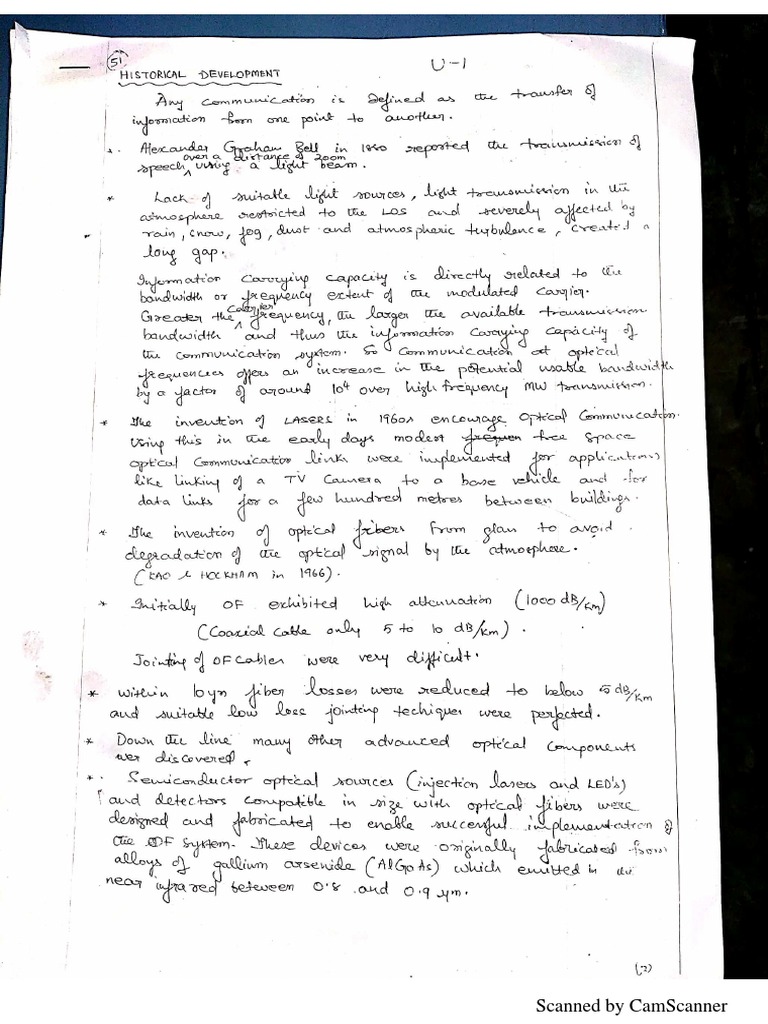 51
U-1
HISTORICAL DEVELOPMENT
Any communication is defined as the transfer of
information from one point to another.
*. Alexander Graham Bell in 1880 reported the transmission of
over a distance of 200m
speech, ^ using a light beam.
* Lack of suitable light sources, light transmission in the
atmosphere restricted to the LOS and severely affected by
rain, snow, fog, dust and atmospheric turbulence, created a
long gap.
Information Carrying capacity is directly related to the
bandwidth or frequency extent of the modulated carrier.
Carrier
Greater the ^ frequency, the larger the available transmission
bandwidth and thus the information carrying capacity of
the communication system. So communication at optical
frequencies offers an increase in the potential usable bandwidth
by a factor of around 10⁴ over high frequency MW transmission.
* The invention of LASERS in 1960s encourage Optical Communication.
Using this in the early days modest frequen free space
optical Communication links were implemented for applications
like linking of a TV Camera to a base vehicle and for
data links for a few hundred metres between buildings.
* The invention of optical fibers from glass to avoid
degradation of the optical signal by the atmosphere.
(KAO & HOCKHAM in 1966).
* Initially OF exhibited high attenuation (1000 dB/km)
(Coaxial Cable only 5 to 10 dB/km).
Jointing of OF Cables were very difficult.
* Within 10yrs fiber losses were reduced to below 5 dB/km
and suitable low loss jointing techiques were perfected.
* Down the line many other advanced optical components
wer discovered.
*. Semiconductor optical sources (injection lasers and LED's)
and detectors compatible in size with optical fibers were
designed and fabricated to enable successful implementation of
the OF system. These devices were originally fabricated from
alloys of gallium arsenide (AlGaAs) which emitted in the
near infrared between 0.8 and 0.9 μm.
Scanned by CamScanner